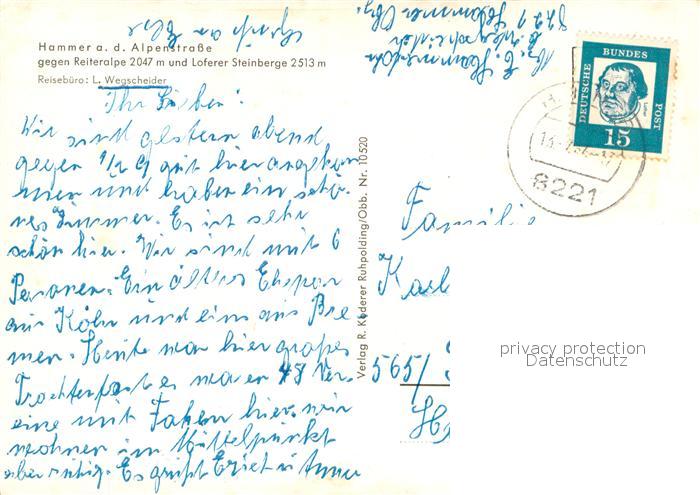 Hammer a. d. Alpenstraße
gegen Reiteralpe 2047 m und Loferer Steinberge 2513 m
Reisebüro: L. Wegscheider
Ihr Lieben!
Wir sind gestern abend
gegen 1/2 9 gut hier angekom
men und haben ein schö-
nes Zimmer. Es ist sehr
schön hier. Wir sind mit 6
Personen. Ein älteres Ehepar
aus Köln und eins aus Bre
men. Heute war hier großes
Trachtenfest es waren 48 Ver.
eine mit Faken hier. wir
wohnen im Mittelpunkt
aber ruhig. Es grüßt Erich u Anna
Verlag R. Kederer Ruhpolding/Obb. Nr. 10520
8221
DEUTSCHE BUNDES POST
Luther
15
8221
Familie
Karl
565/
privacy protection
Datenschutz